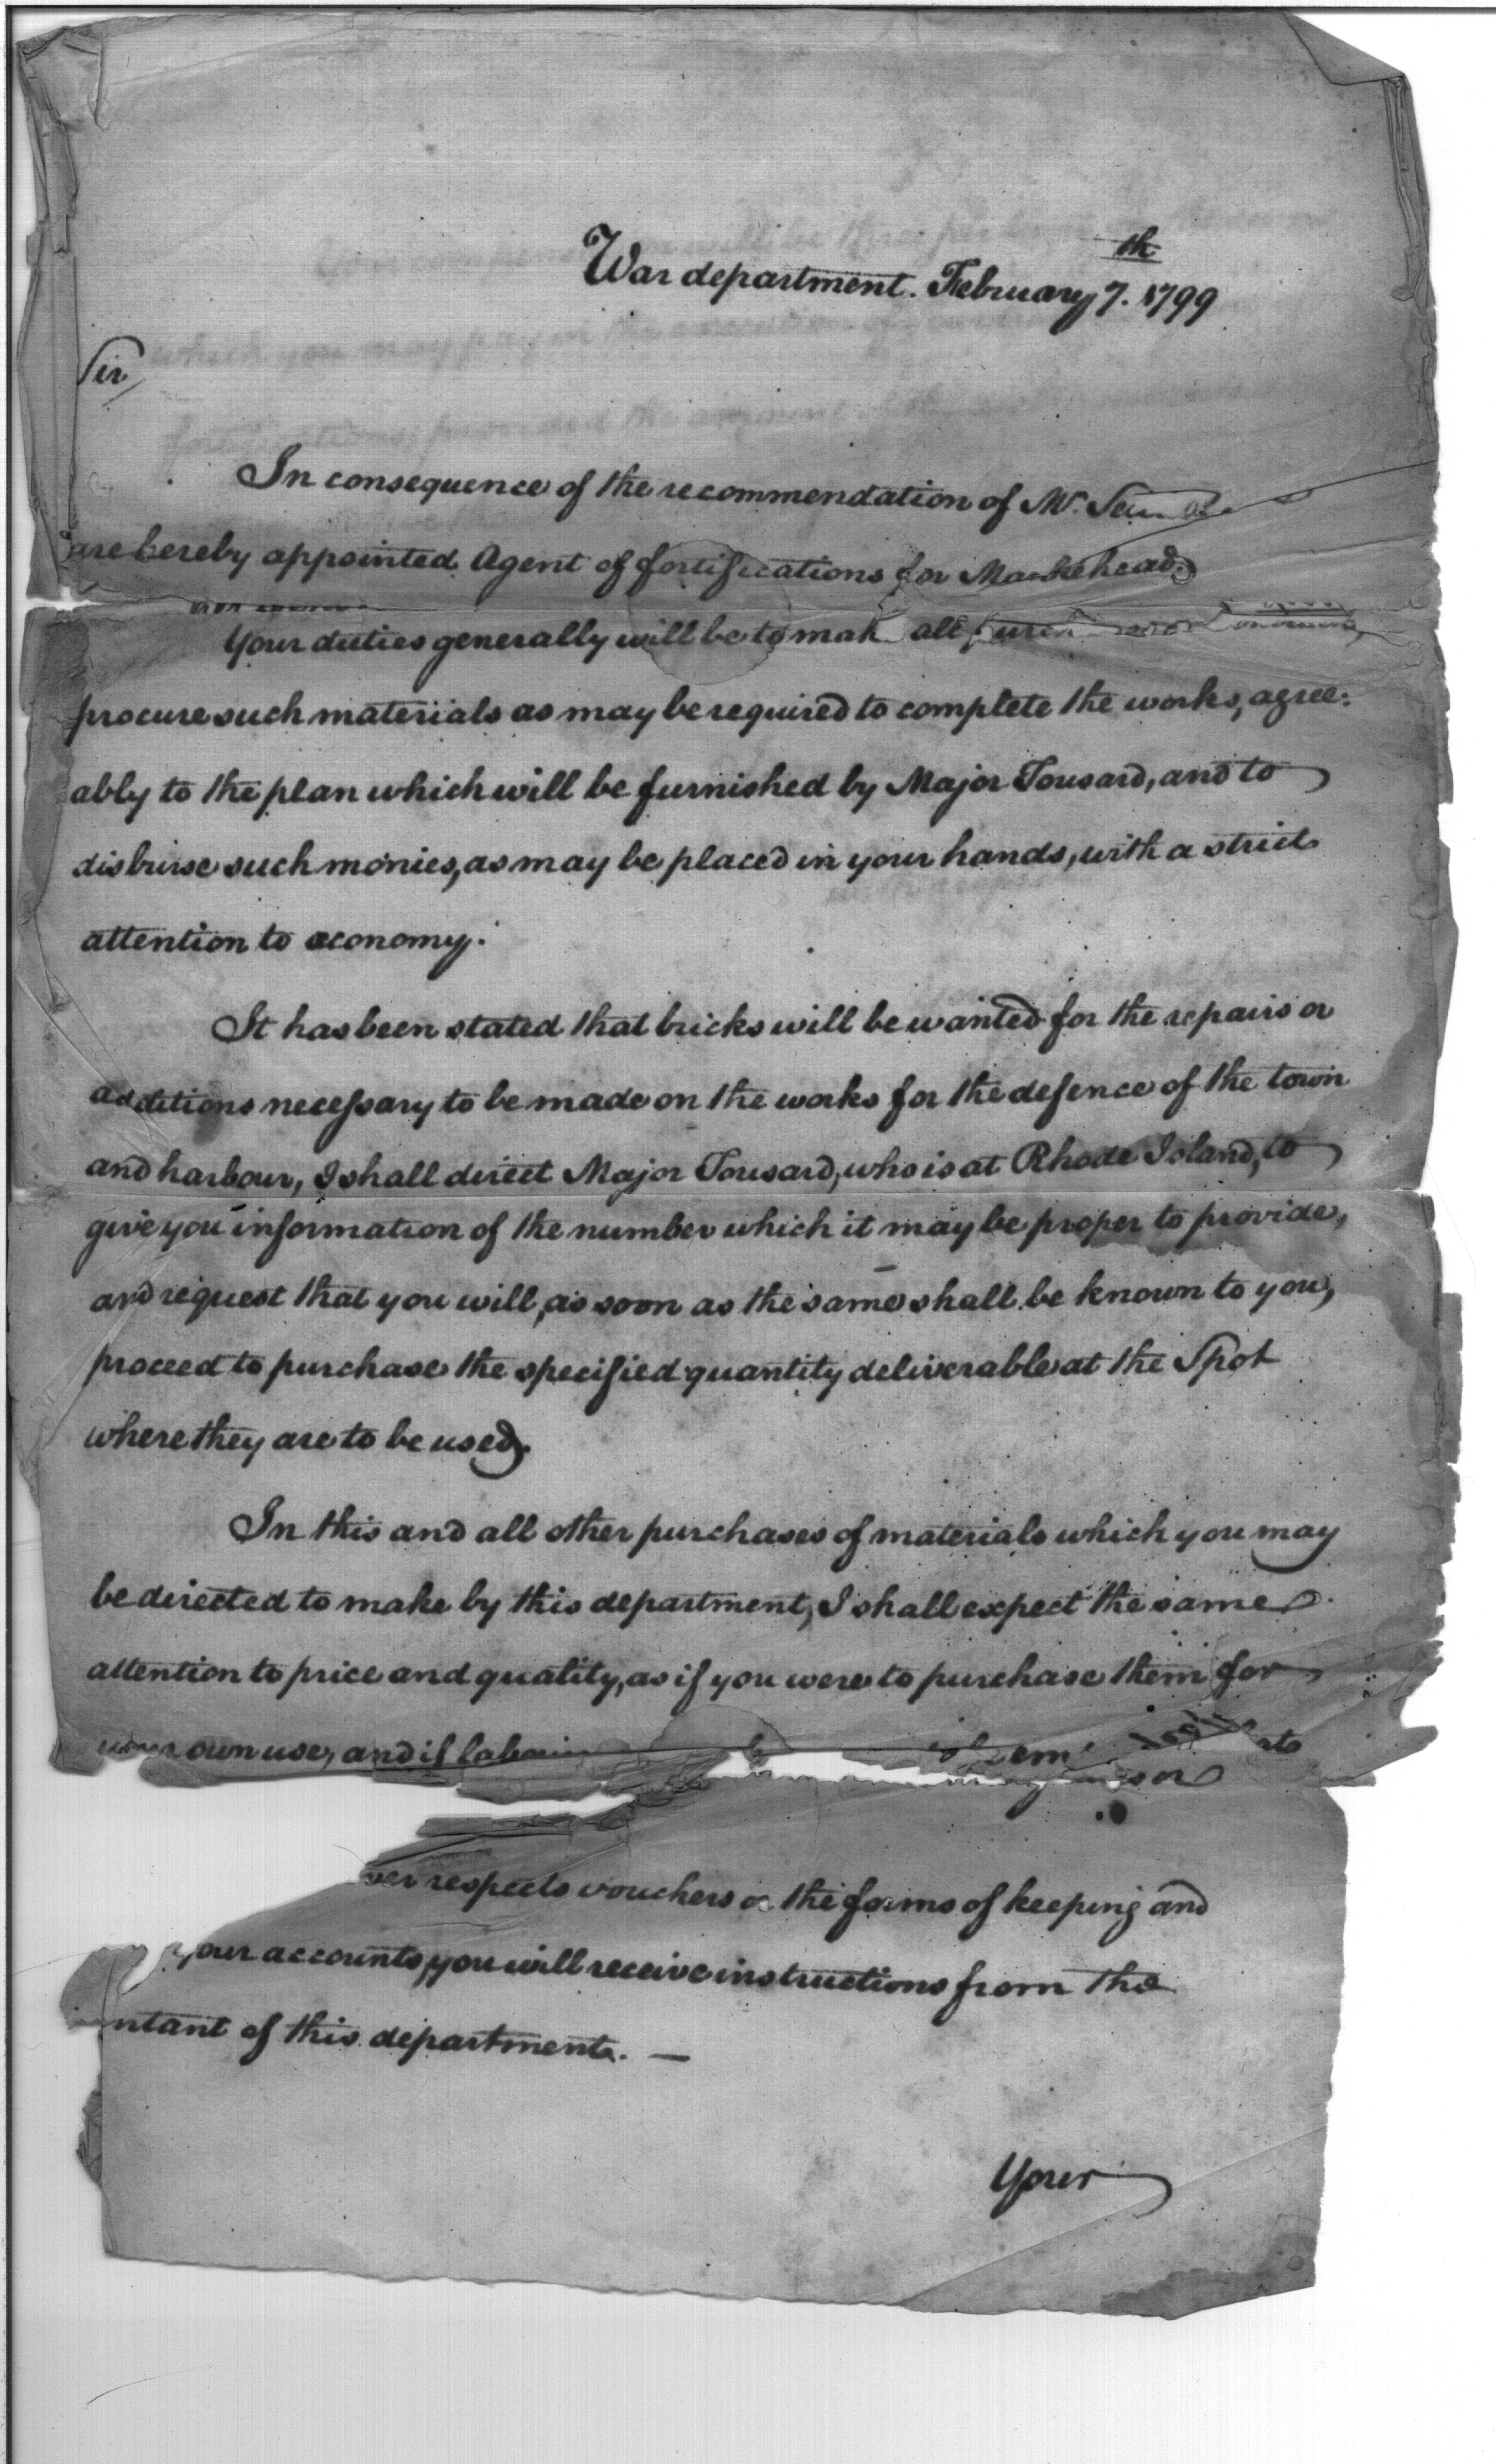 War department. February 7.th 1799
Sir
In consequence of the recommendation of Mr.
are hereby appointed Agent of fortifications for Marblehead.
Your duties generally will be to mak all
procure such materials as may be required to complete the works, agree-
ably to the plan which will be furnished by Major Tousard, and to
disburse such monies, as may be placed in your hands, with a strict
attention to œconomy.
It has been stated that bricks will be wanted for the repairs or
additions necessary to be made on the works for the defence of the town
and harbour, I shall direct Major Tousard, who is at Rhode Island, to
give you information of the number which it may be proper to provide,
and request that you will, as soon as the same shall be known to you,
proceed to purchase the specified quantity deliverable at the Spot
where they are to be used.
In this and all other purchases of materials which you may
be directed to make by this department, I shall expect the same
attention to price and quality, as if you were to purchase them for
your own use, and if
respects vouchers or the forms of keeping and
your accounts, you will receive instructions from the
ntant of this department. —
Your